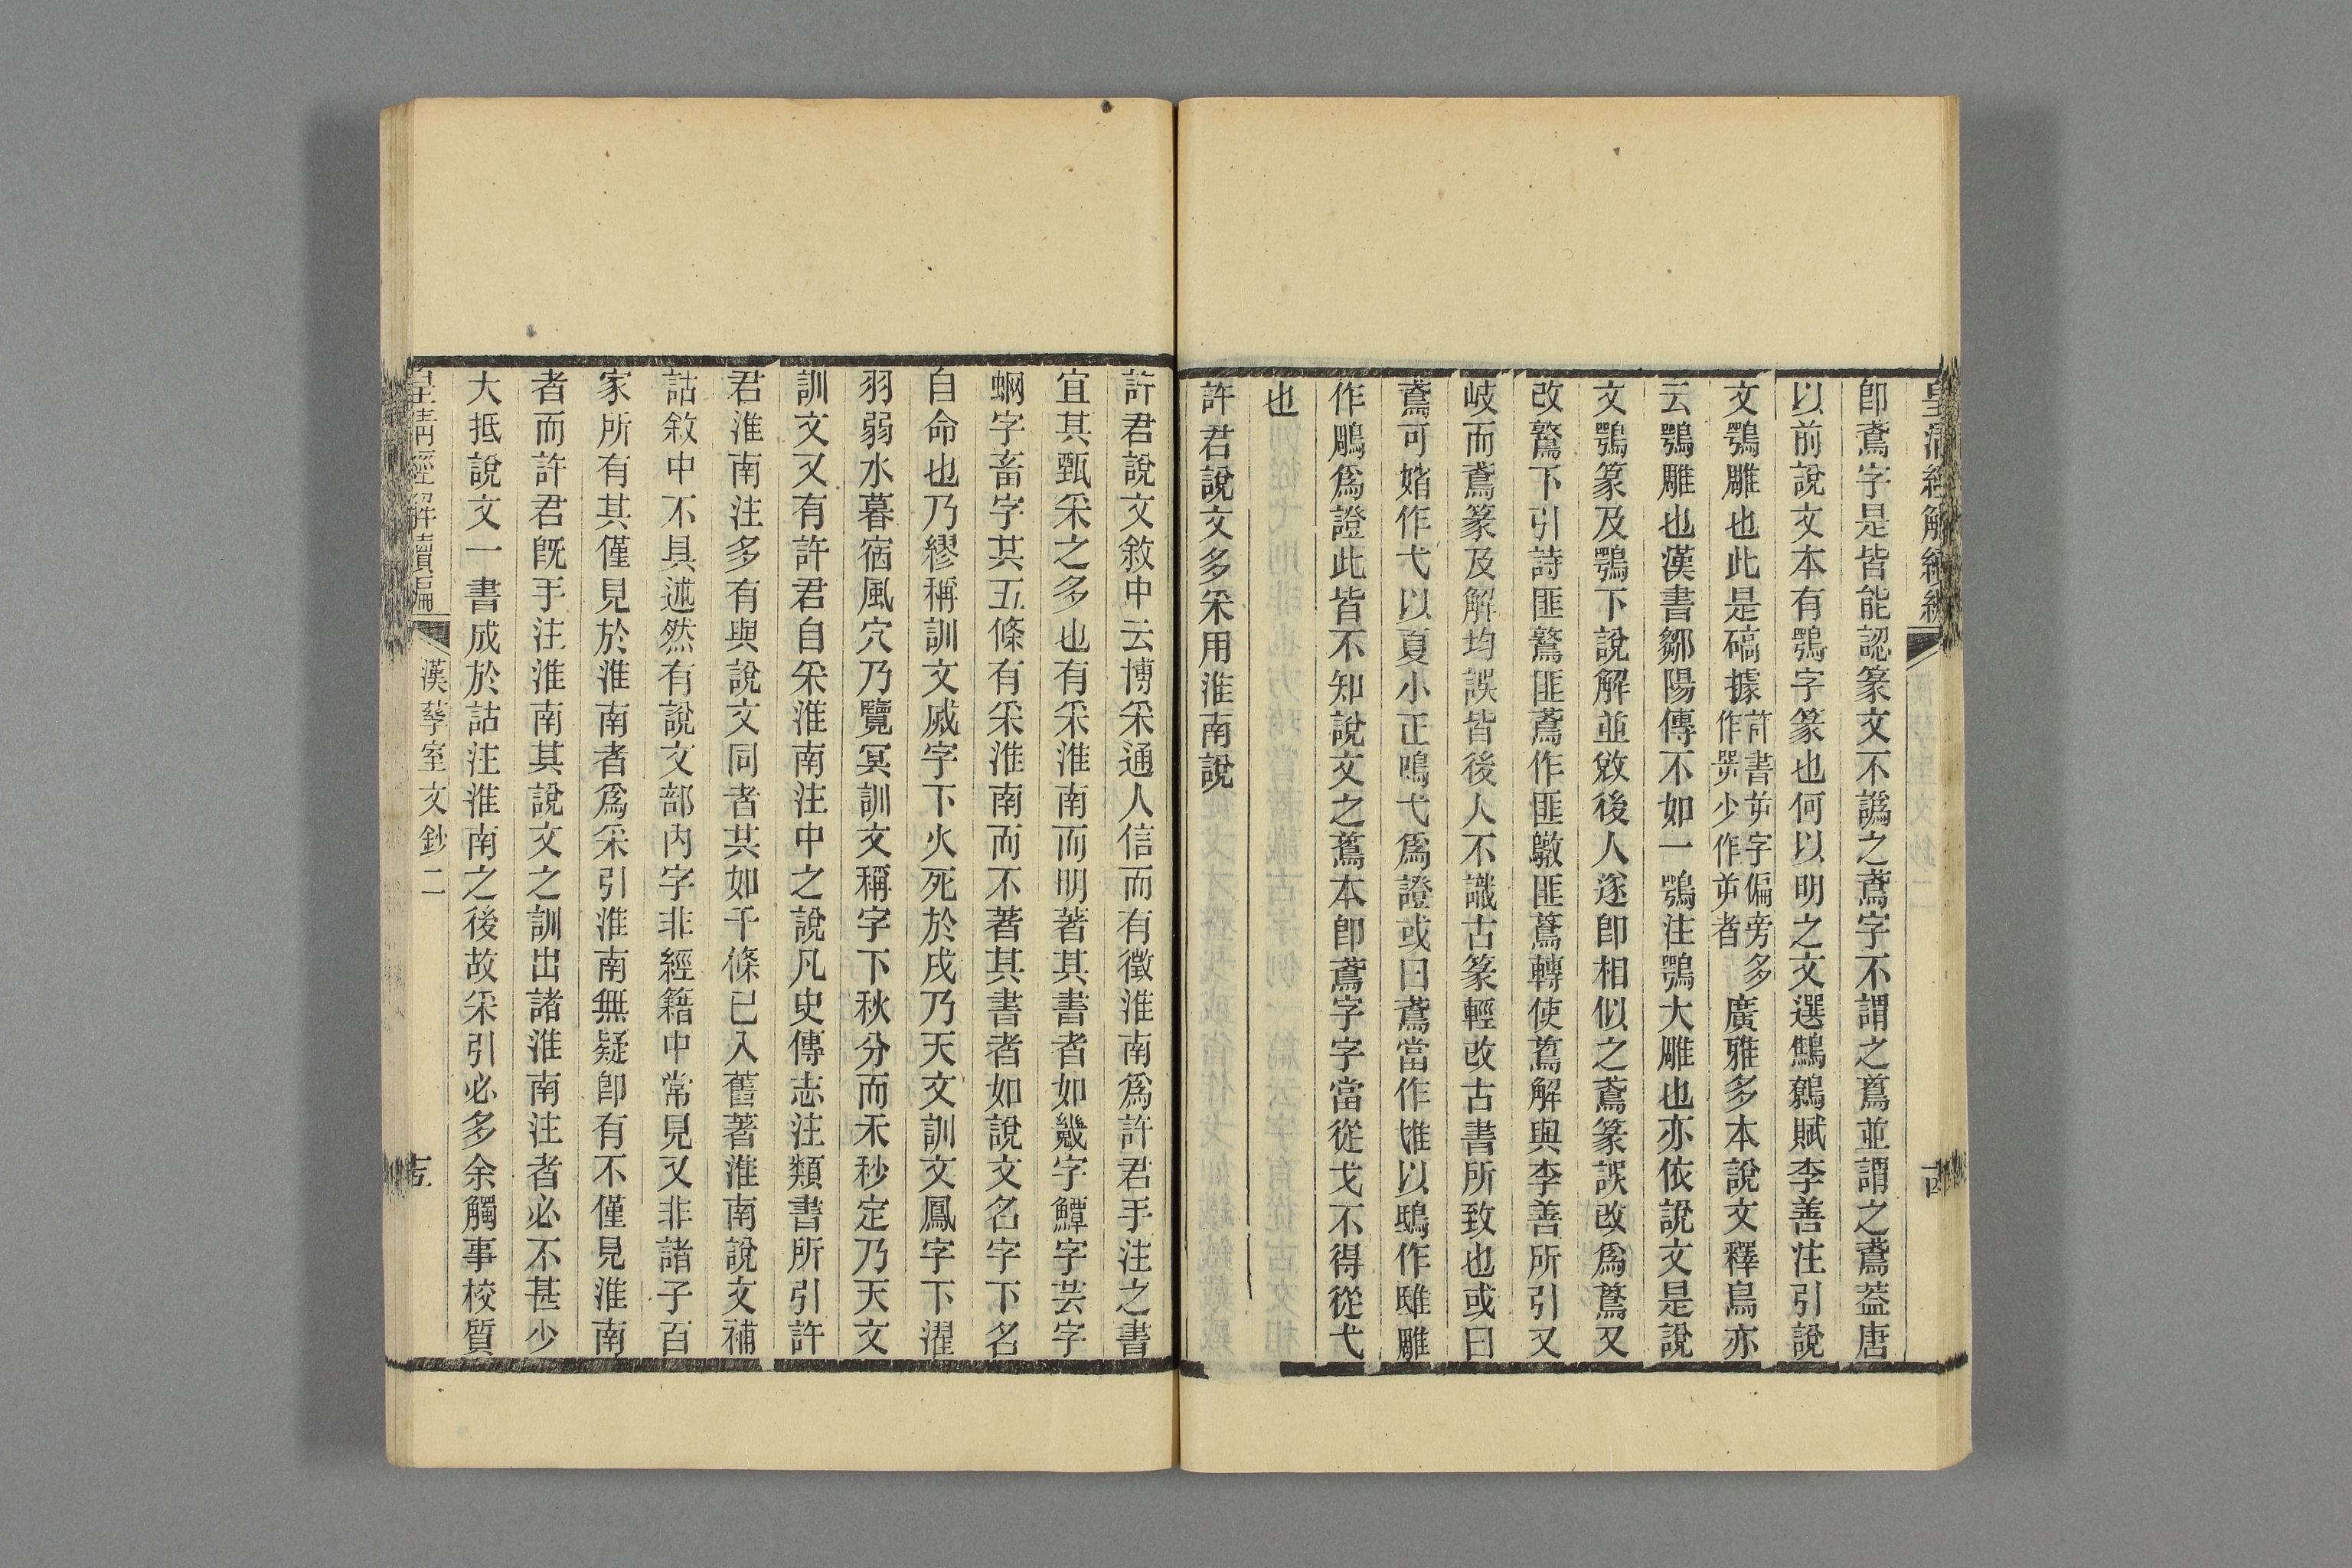 皇清經解續編
十四
卽鳶字是皆能認篆文不譌之鳶字不謂之蔦並謂之鳶葢唐
以前說文本有鶚字篆也何以明之文選鷦鷯賦李善注引說
文鶚雕也此是碻據許書屰字偏旁多作㖾少作屰者廣雅多本說文釋鳥亦
云鶚雕也漢書鄒陽傳不如一鶚注鶚大雕也亦依說文是說
文鶚篆及鶚下說解並敓後人遂卽相似之鳶篆誤改爲䳒又
改鷻下引詩匪鷻匪鳶作匪䳒轉使解與李善所引又
岐而鳶篆及解均誤皆後人不識古篆輕改古書所致也或曰
鳶可㨗作弋以夏小正鳴弋爲證或曰鳶當作雄以鴟作雎雕
作鵰爲證此皆不知說文之䳒本卽鳶字字當從戈不得從弋
也
許君說文多采用淮南說
許君說文敘中云博采通人信而有徵淮南爲許君手注之書
宜其甄采之多也有采淮南而明著其書者如畿字鱏字芸字
蛧字畜字其五條有采淮南而不著其書者如說文名字下名
自命也乃繆稱訓文烕字下火死於戌乃天文訓文鳳字下濯
羽弱水暮宿風穴乃覽冥訓文稱字下秋分而禾秒定乃天文
訓文又有許君自采淮南注中之說凡史傳志注類書所引許
君淮南注多有與說文同者共如干條已入舊著淮南說文補
詁敘中不具述然有說文部內字非經籍中常見又非諸子百
家所有其僅見於淮南者爲采引淮南無疑卽有不僅見淮南
者而許君旣手注淮南其說文之訓出諸淮南注者必不甚少
大抵說文一書成於詁注淮南之後故采引必多余觸事校質
皇清經解續編
漢孳室文鈔二
十五